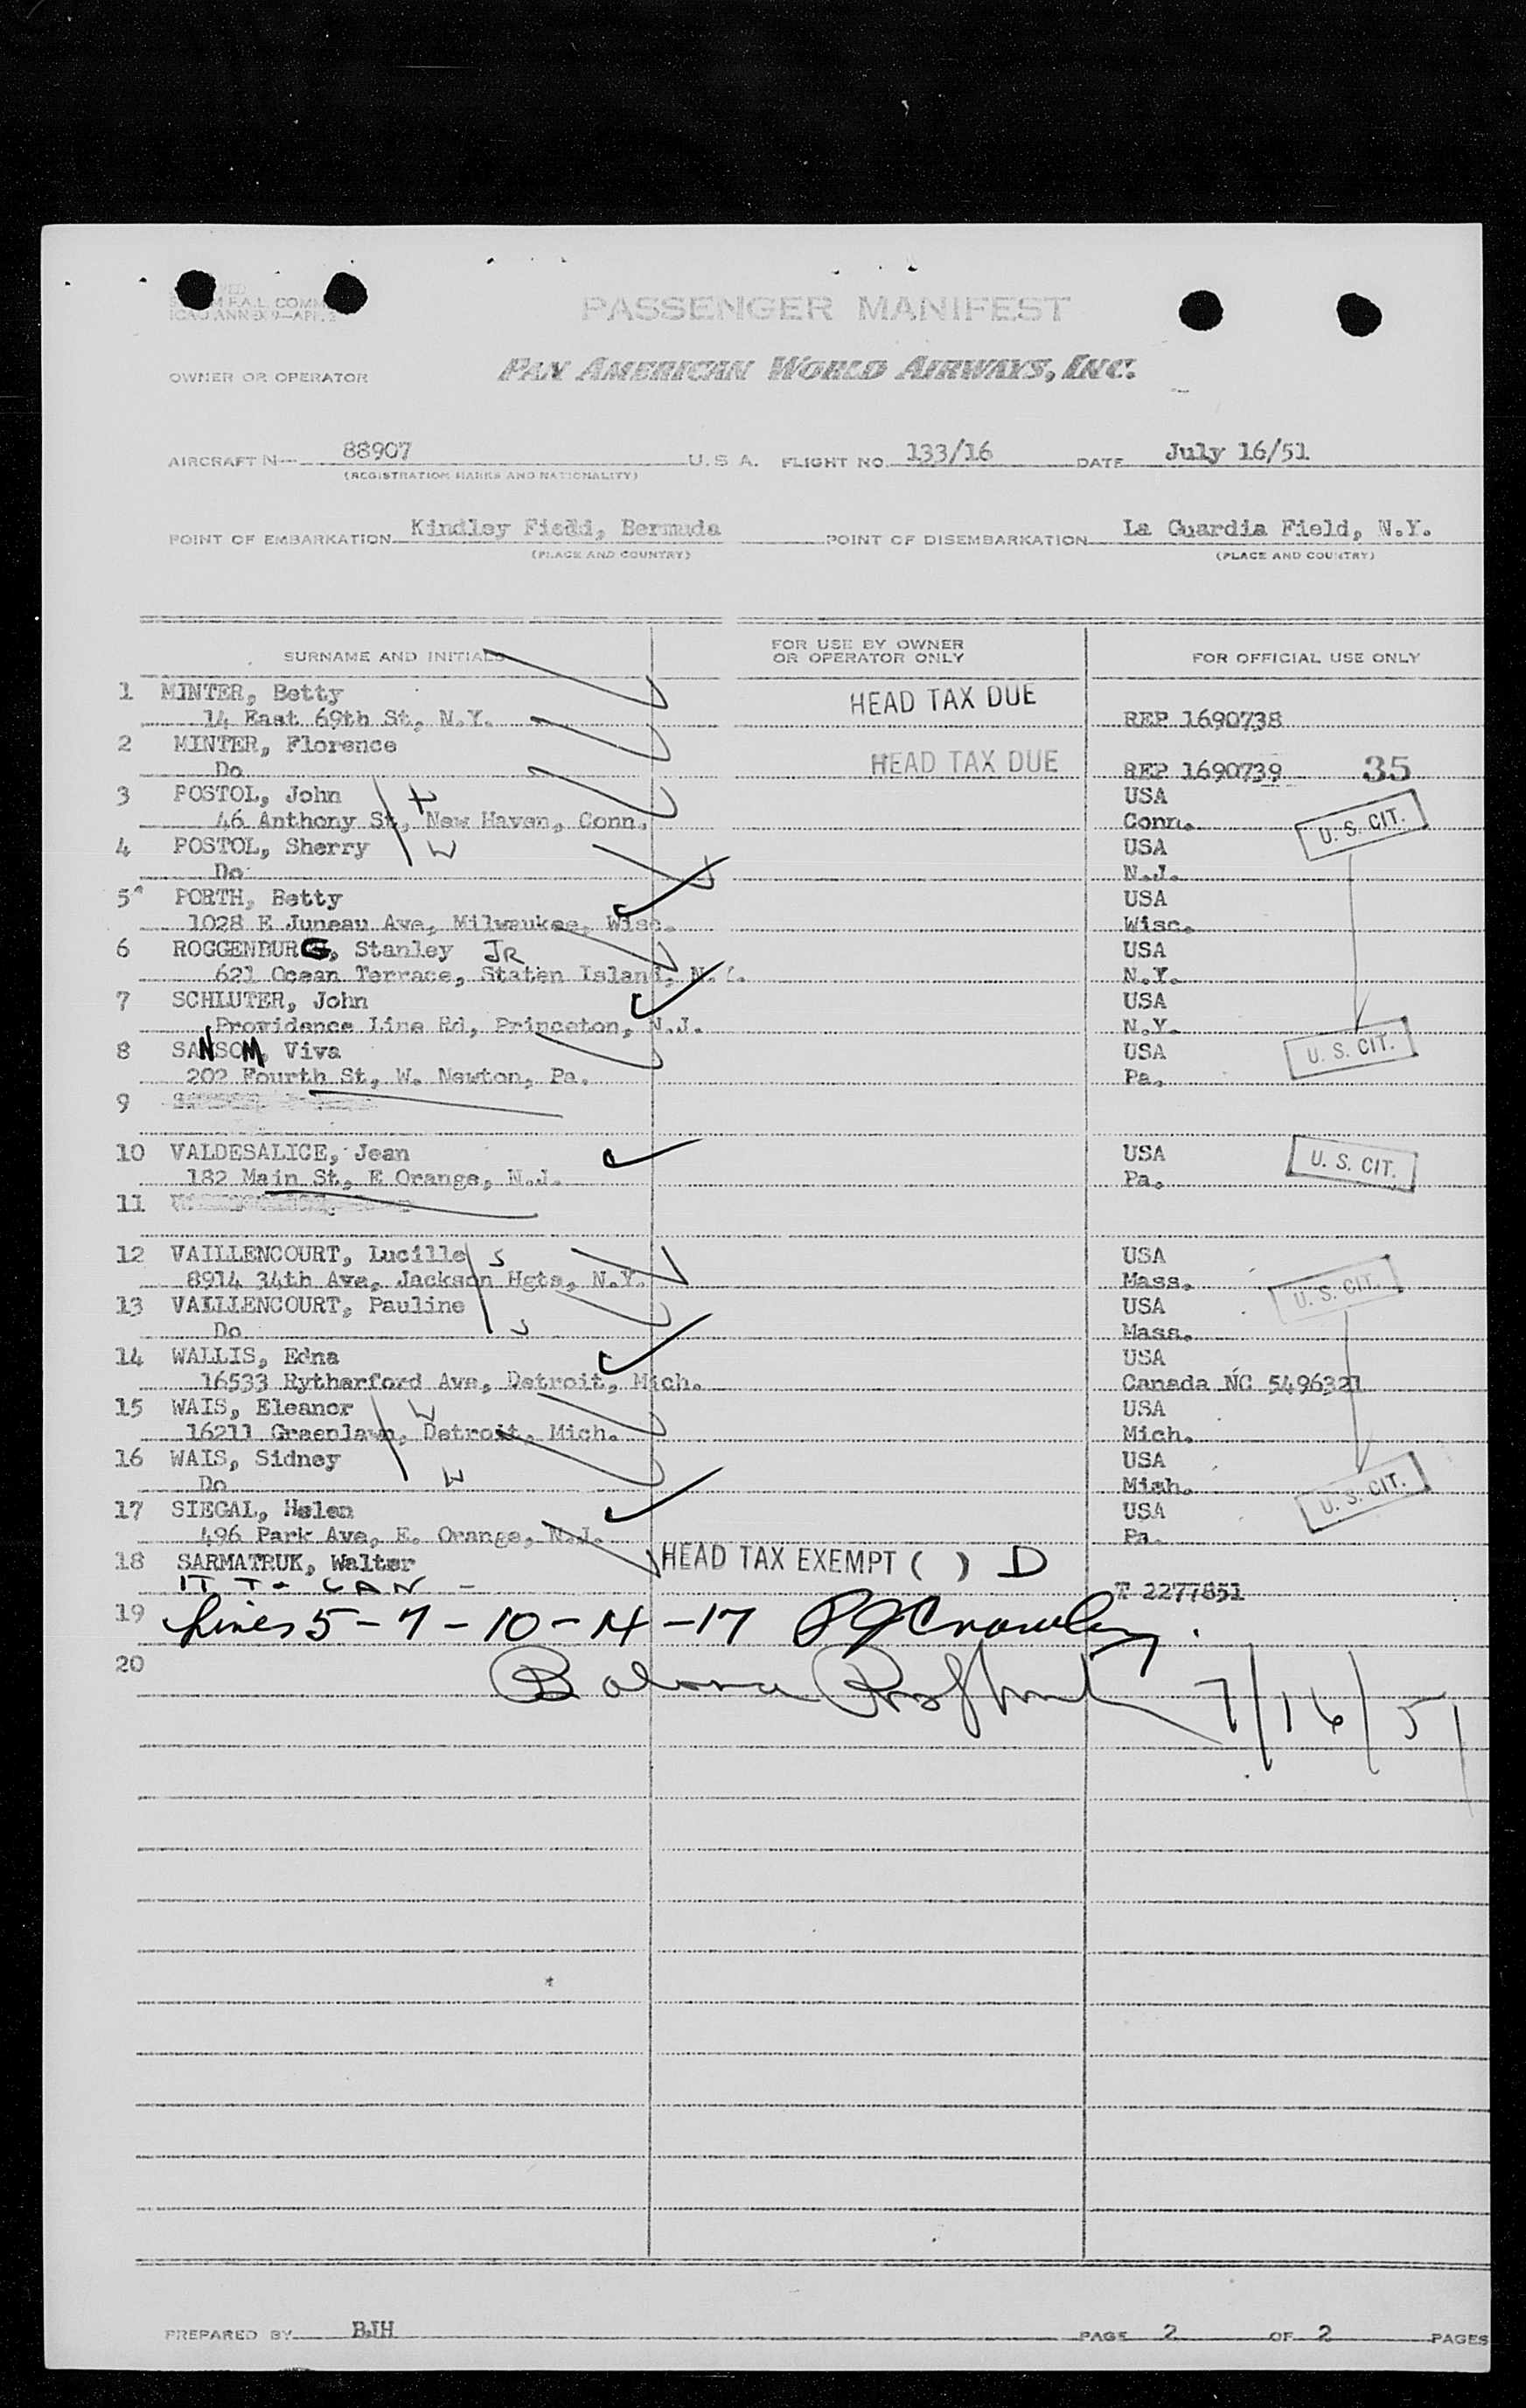 F.A.L. COMM
ICAO ANNEX 9—APP.
PASSENGER MANIFEST
OWNER OR OPERATOR PAN AMERICAN WORLD AIRWAYS, INC.
AIRCRAFT N— 88907 U.S.A. FLIGHT NO. 133/16 DATE July 16/51
(REGISTRATION MARKS AND NATIONALITY)
POINT OF EMBARKATION Kindley Fiedd, Bermuda POINT OF DISEMBARKATION La Guardia Field, N.Y.
(PLACE AND COUNTRY) (PLACE AND COUNTRY)
SURNAME AND INITIALS FOR USE BY OWNER OR OPERATOR ONLY FOR OFFICIAL USE ONLY
1 MINTER, Betty HEAD TAX DUE
14 East 69th St, N.Y. REP 1690738
2 MINTER, Florence HEAD TAX DUE
Do REP 1690739 35
3 POSTOL, John USA
46 Anthony St, New Haven, Conn. Conn. U. S. CIT.
4 POSTOL, Sherry W USA
Do N.J.
5 PORTH, Betty USA
1028 E Juneau Ave, Milwaukee, Wisc. Wisc.
6 ROGGENBURG, Stanley JR USA
621 Ocean Terrace, Staten Island, N.Y. N.Y.
7 SCHLUTER, John USA
Providence Line Rd, Princeton, N.J. N.Y.
8 SANSOM, Viva USA U. S. CIT.
202 Fourth St, W. Newton, Pa. Pa.
9
10 VALDESALICE, Jean USA
182 Main St, E Orange, N.J. Pa. U. S. CIT.
11
12 VAILLENCOURT, Lucille S USA
8914 34th Ave, Jackson Hgts, N.Y. Mass. U. S. CIT.
13 VAILLENCOURT, Pauline USA
Do S Mass.
14 WALLIS, Edna USA
16533 Rytherford Ave, Detroit, Mich. Canada NC 5496321
15 WAIS, Eleanor W USA
16211 Greenlawn, Detroit, Mich. Mich.
16 WAIS, Sidney USA
Do W Mich. U. S. CIT.
17 SIEGAL, Helen USA
496 Park Ave, E. Orange, N.J. Pa.
18 SARMATRUK, Walter HEAD TAX EXEMPT ( ) D
IT To CAN - T 2277851
19 Lines 5-7-10-14-17 PJ Crowley.
20 7/16/51
PREPARED BY BJH PAGE 2 OF 2 PAGES